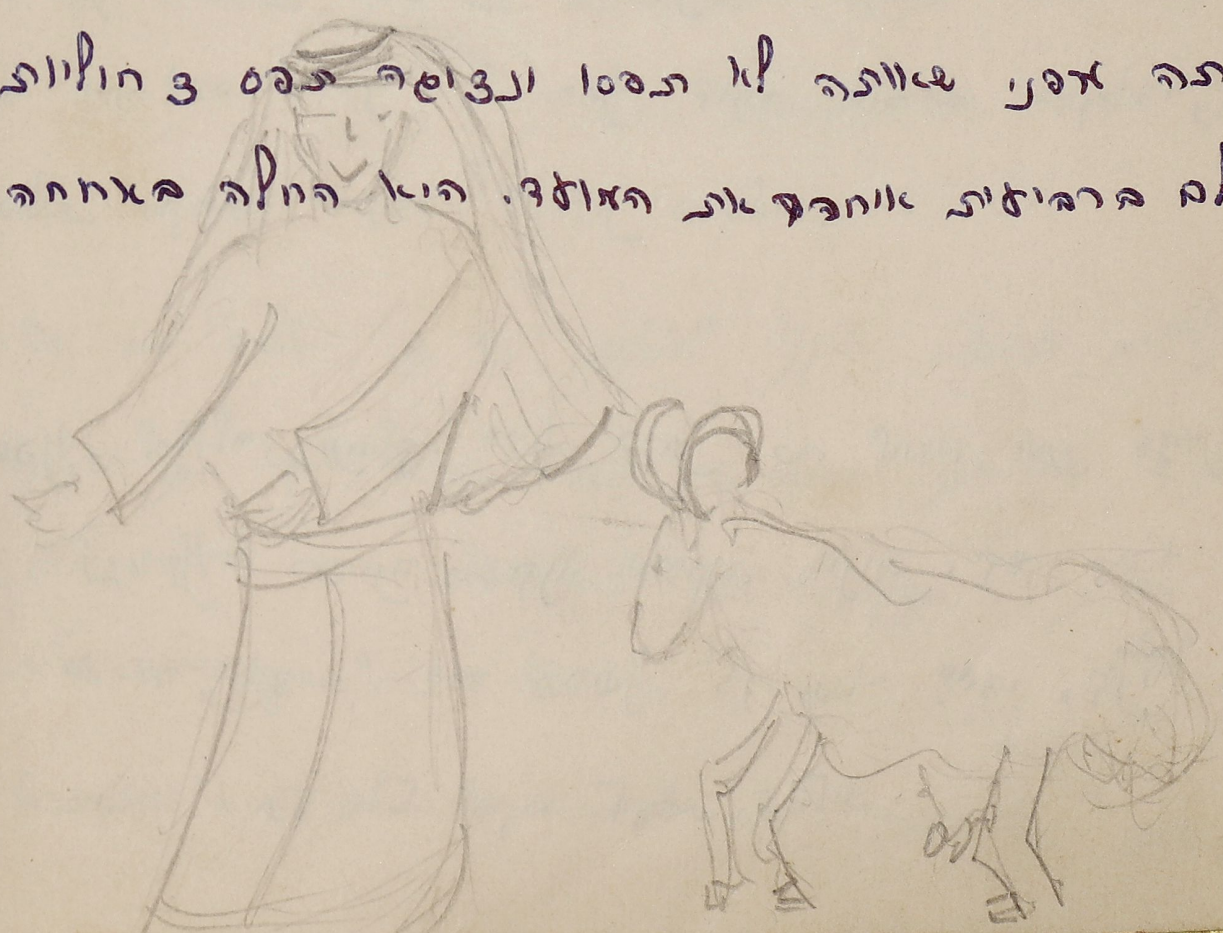 תה מפני שאותה לא תפסו ונצוגה תפס צ חוליות
לם ברביעית את המועד. היא החלה בארוחה